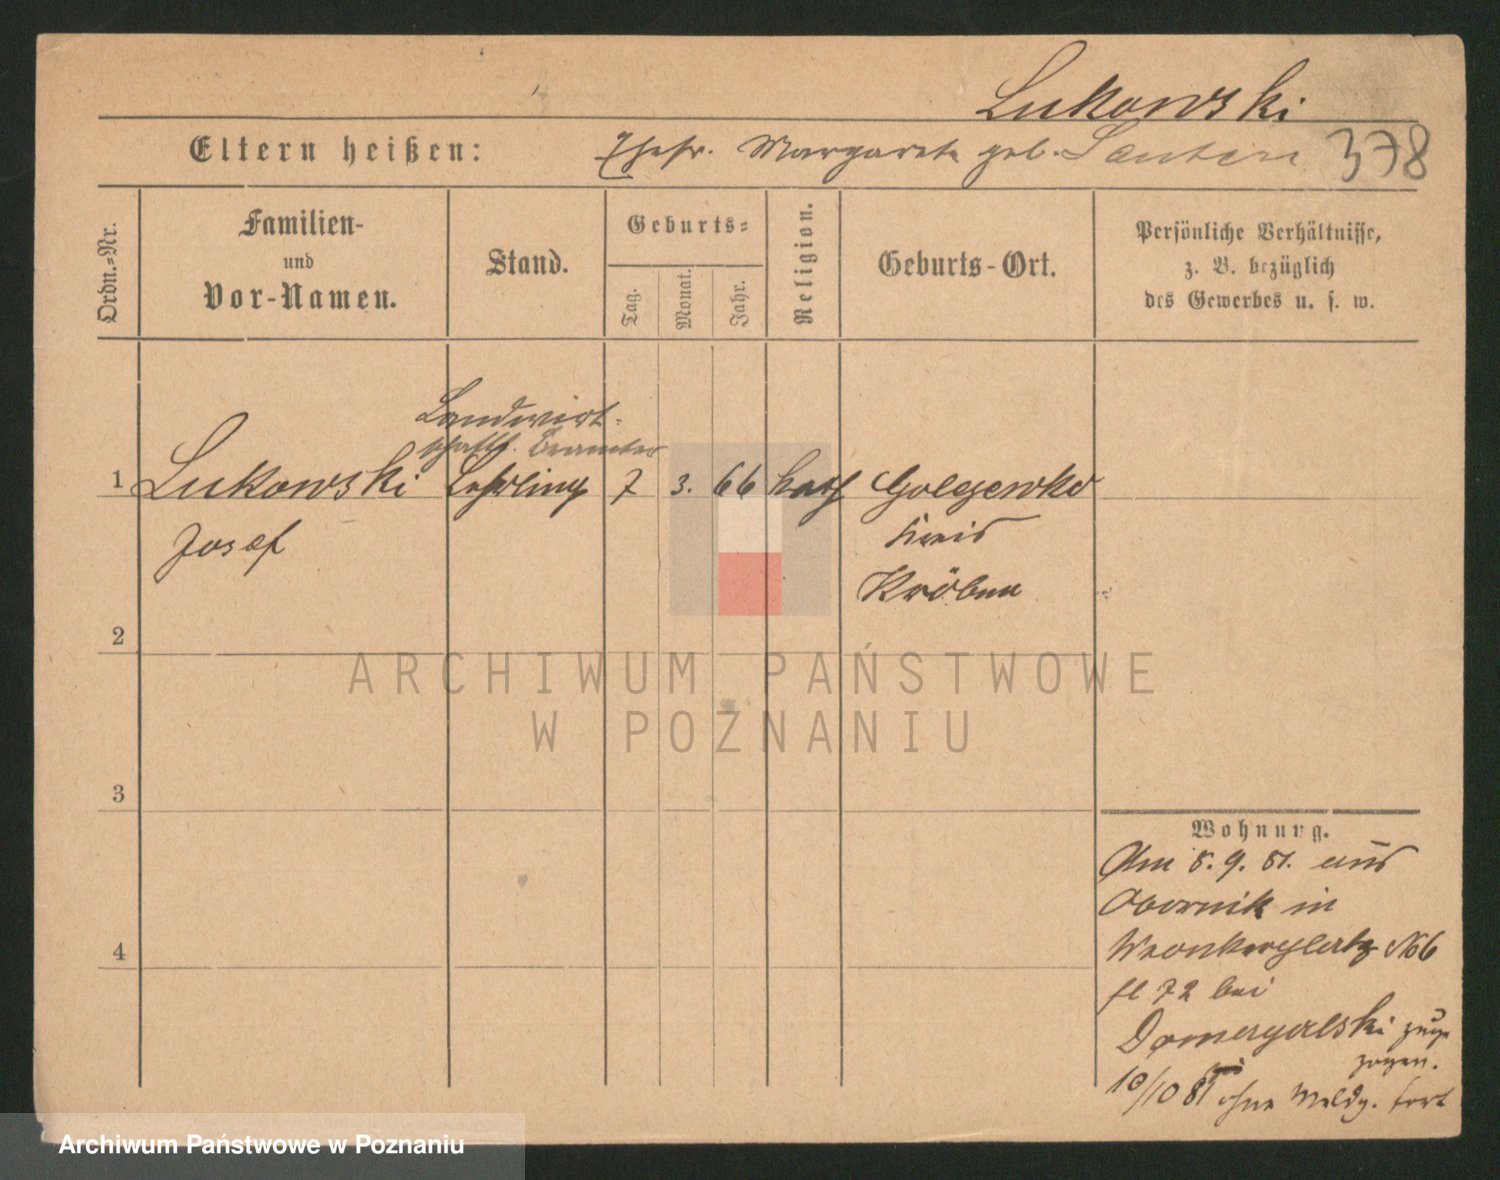 Lukowski
Eltern heißen: Ehefr. Margareta geb. 378
Ordn.-Nr.
Familien-
und
Vor-Namen.
Stand.
Geburts-
Tag.
Monat.
Jahr.
Religion.
Geburts-Ort.
Persönliche Verhältnisse,
z. B. bezüglich
des Gewerbes u. s. w.
Landwirt-
schaftl. Beamter
1 Lukowski Lehrling 7 3. 66 kath Golejewko
Josef Kreis
Kröben
2
3
4
Wohnung.
Am 8. 9. 81. aus
Obornik in
Wronkerplatz No 6
bei
zuge
zogen.
10/10 81 ohne Meldg. fort
ARCHIWUM PAŃSTWOWE
W POZNANIU
Archiwum Państwowe w Poznaniu